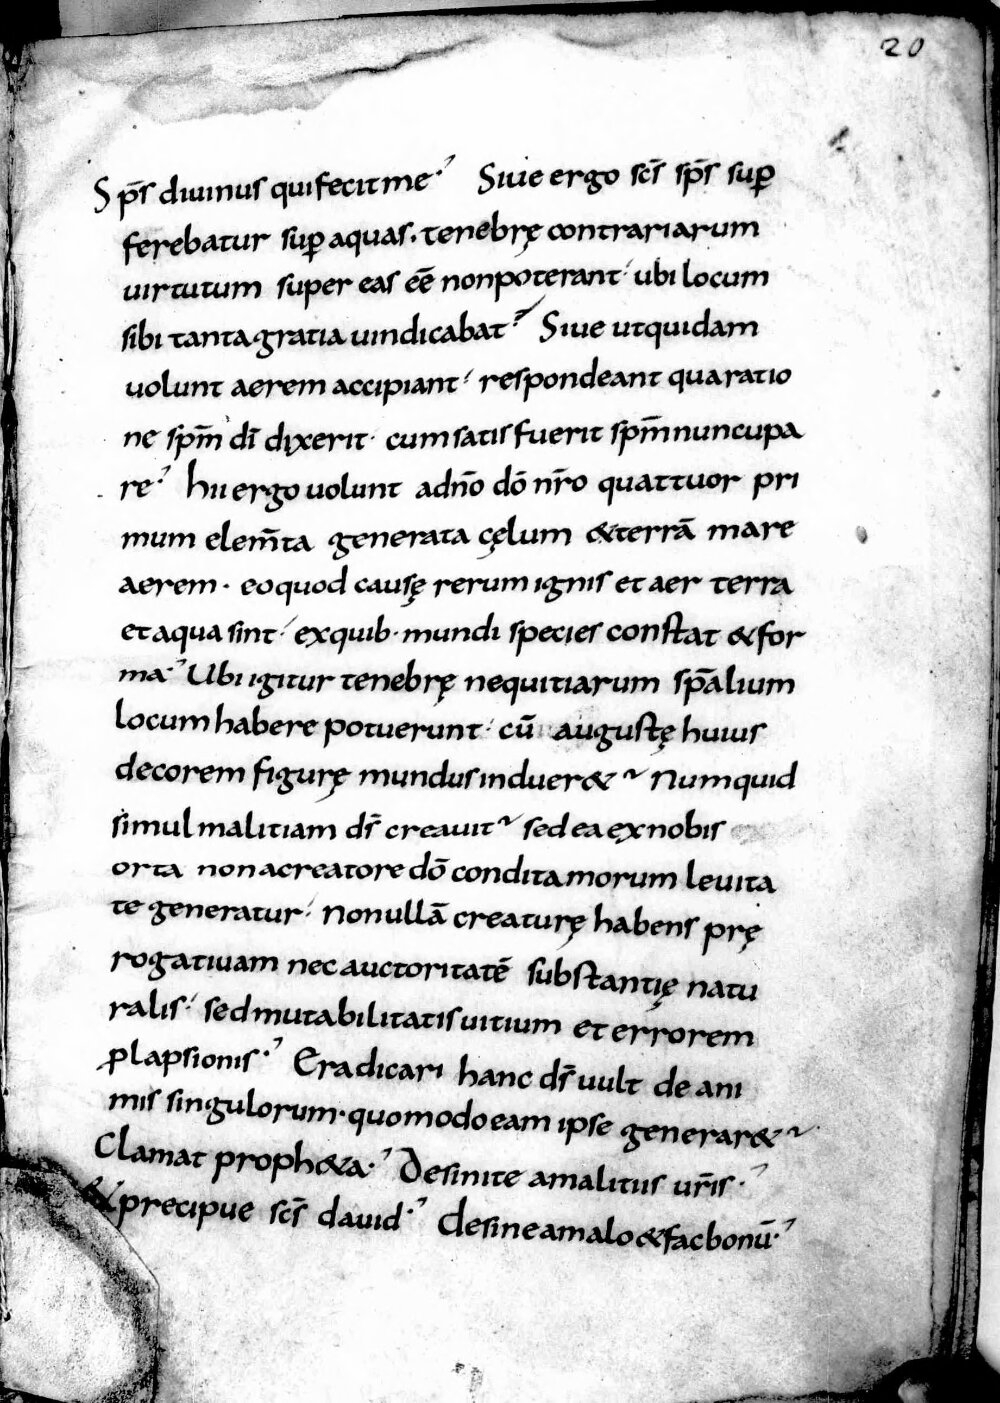 20
Sp̄s diuinus qui fecit me. Siue ergo sc̄s sp̄s sup̱
ferebatur sup̱ aquas. tenebrę contrariarum
uirtutum super eas eē̄ non poterant. ubi locum
sibi tanta gratia uindicabat. Siue ut quidam
uolunt aerem accipiant. respondeant qua ratio
ne sp̄m dī dixerit. cum satis fuerit sp̄m nuncupa
re. hii ergo uolunt a dn̄o dō nr̄o quattuor pri
mum elem̄ta generata cęlum & terrā mare
aerem. eo quod causę rerum ignis et aer terra
et aqua sint. ex quib. mundi species constat & for
ma. Ubi igitur tenebrę nequitiarum sp̄alium
locum habere potuerunt. cū augustę huius
decorem figurę mundus induer& Numquid
simul malitiam ds̄ creauit sed ea ex nobis
orta non a creatore dō condita morum leuita
te generatur. non ullā creaturę habens prę
rogatiuam nec auctoritatē substantię natu
ralis. sed mutabilitatis uitium et errorem
ꝓlapsionis. Eradicari hanc ds̄ uult de ani
mis singulorum. quomodo eam ipse generar&
Clamat proph&a. Desinite a malitiis ur̄is.
Et precipue sc̄s dauid. desine a malo & fac bonū.